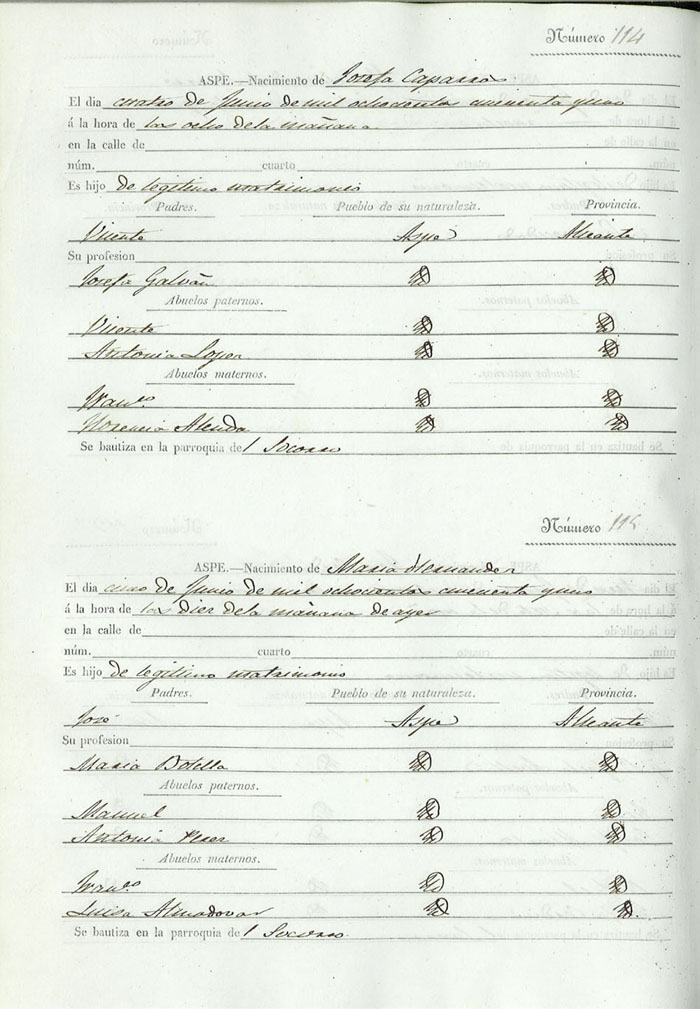 Número 114
ASPE.—Nacimiento de Josefa Caparros
El dia cuatro de Junio de mil ochocientos cincuenta y uno
á la hora de las ocho de la mañana
en la calle de
núm. cuarto
Es hijo de legitimo matrimonio
Padres. Pueblo de su naturaleza. Provincia.
Vicente Aspe Alicante
Su profesion
Josefa Galvañ
Abuelos paternos.
Vicente
Antonia Lopez
Abuelos maternos.
Franco
Florencia Alenda
Se bautiza en la parroquia del Socorro
Número 115
ASPE.—Nacimiento de Maria Hernandez
El dia cinco de Junio de mil ochocientos cincuenta y uno
á la hora de las diez de la mañana de ayer
en la calle de
núm. cuarto
Es hijo de legitimo matrimonio
Padres. Pueblo de su naturaleza. Provincia.
José Aspe Alicante
Su profesion
Maria Botella
Abuelos paternos.
Manuel
Antonia Perez
Abuelos maternos.
Franco
Luisa Almodovar
Se bautiza en la parroquia del Socorro